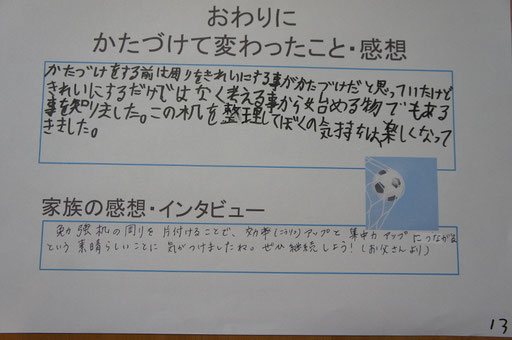 おわりに
かたづけて変わったこと・感想
かたづけをする前は周りをきれいにする事がかたづけだと思っていたけど
きれいにするだけではなく考える事から始める物でもある
事を知りました。この机を整理してぼくの気持ちは、楽しくなって
きました。
家族の感想・インタビュー
勉強机の周りを片付けることで、効率(こうりつ)アップと集中力アップにつながる
という素晴らしいことに気がつけましたね。ぜひ継続しよう!(お父さんより)
13